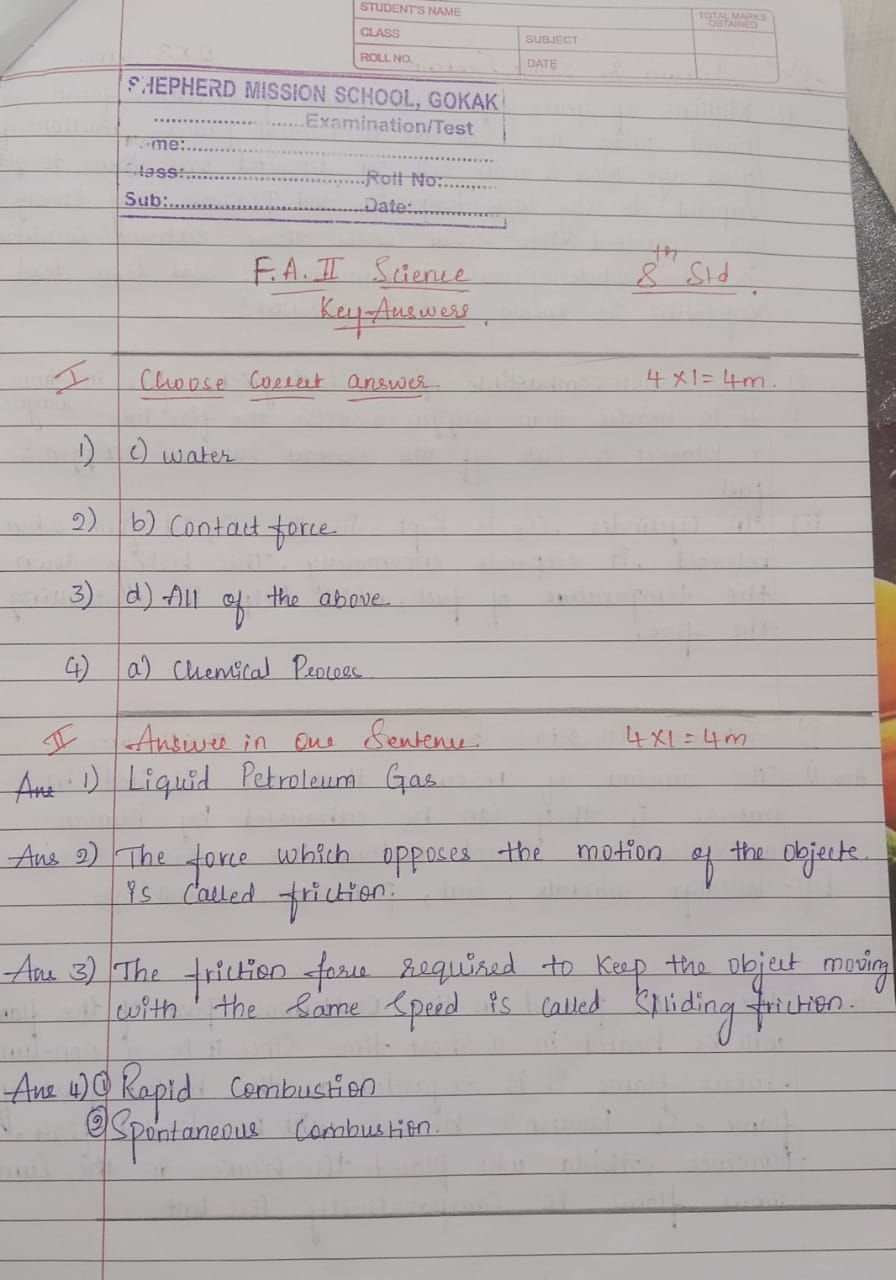 STUDENT'S NAME
TOTAL MARKS OBTAINED
CLASS
SUBJECT
ROLL NO.
DATE
SHEPHERD MISSION SCHOOL, GOKAK
.................. ......Examination/Test
Name:..........................................................
Class:.................................Roll No:..........
Sub:....................................Date:..............
F.A. II Science
8th Std.
Key-Answers.
I Choose Correct answer 4 x 1 = 4m.
1) c) water
2) b) Contact force
3) d) All of the above
4) a) Chemical Process
II Answer in One Sentence 4 x 1 = 4m
Ans 1) Liquid Petroleum Gas
Ans 2) The force which opposes the motion of the objects.
is called friction.
Ans 3) The friction force required to keep the object moving
with the same speed is called Slliding friction.
Ans 4) ① Rapid Combustion
② Spontaneous Combustion.